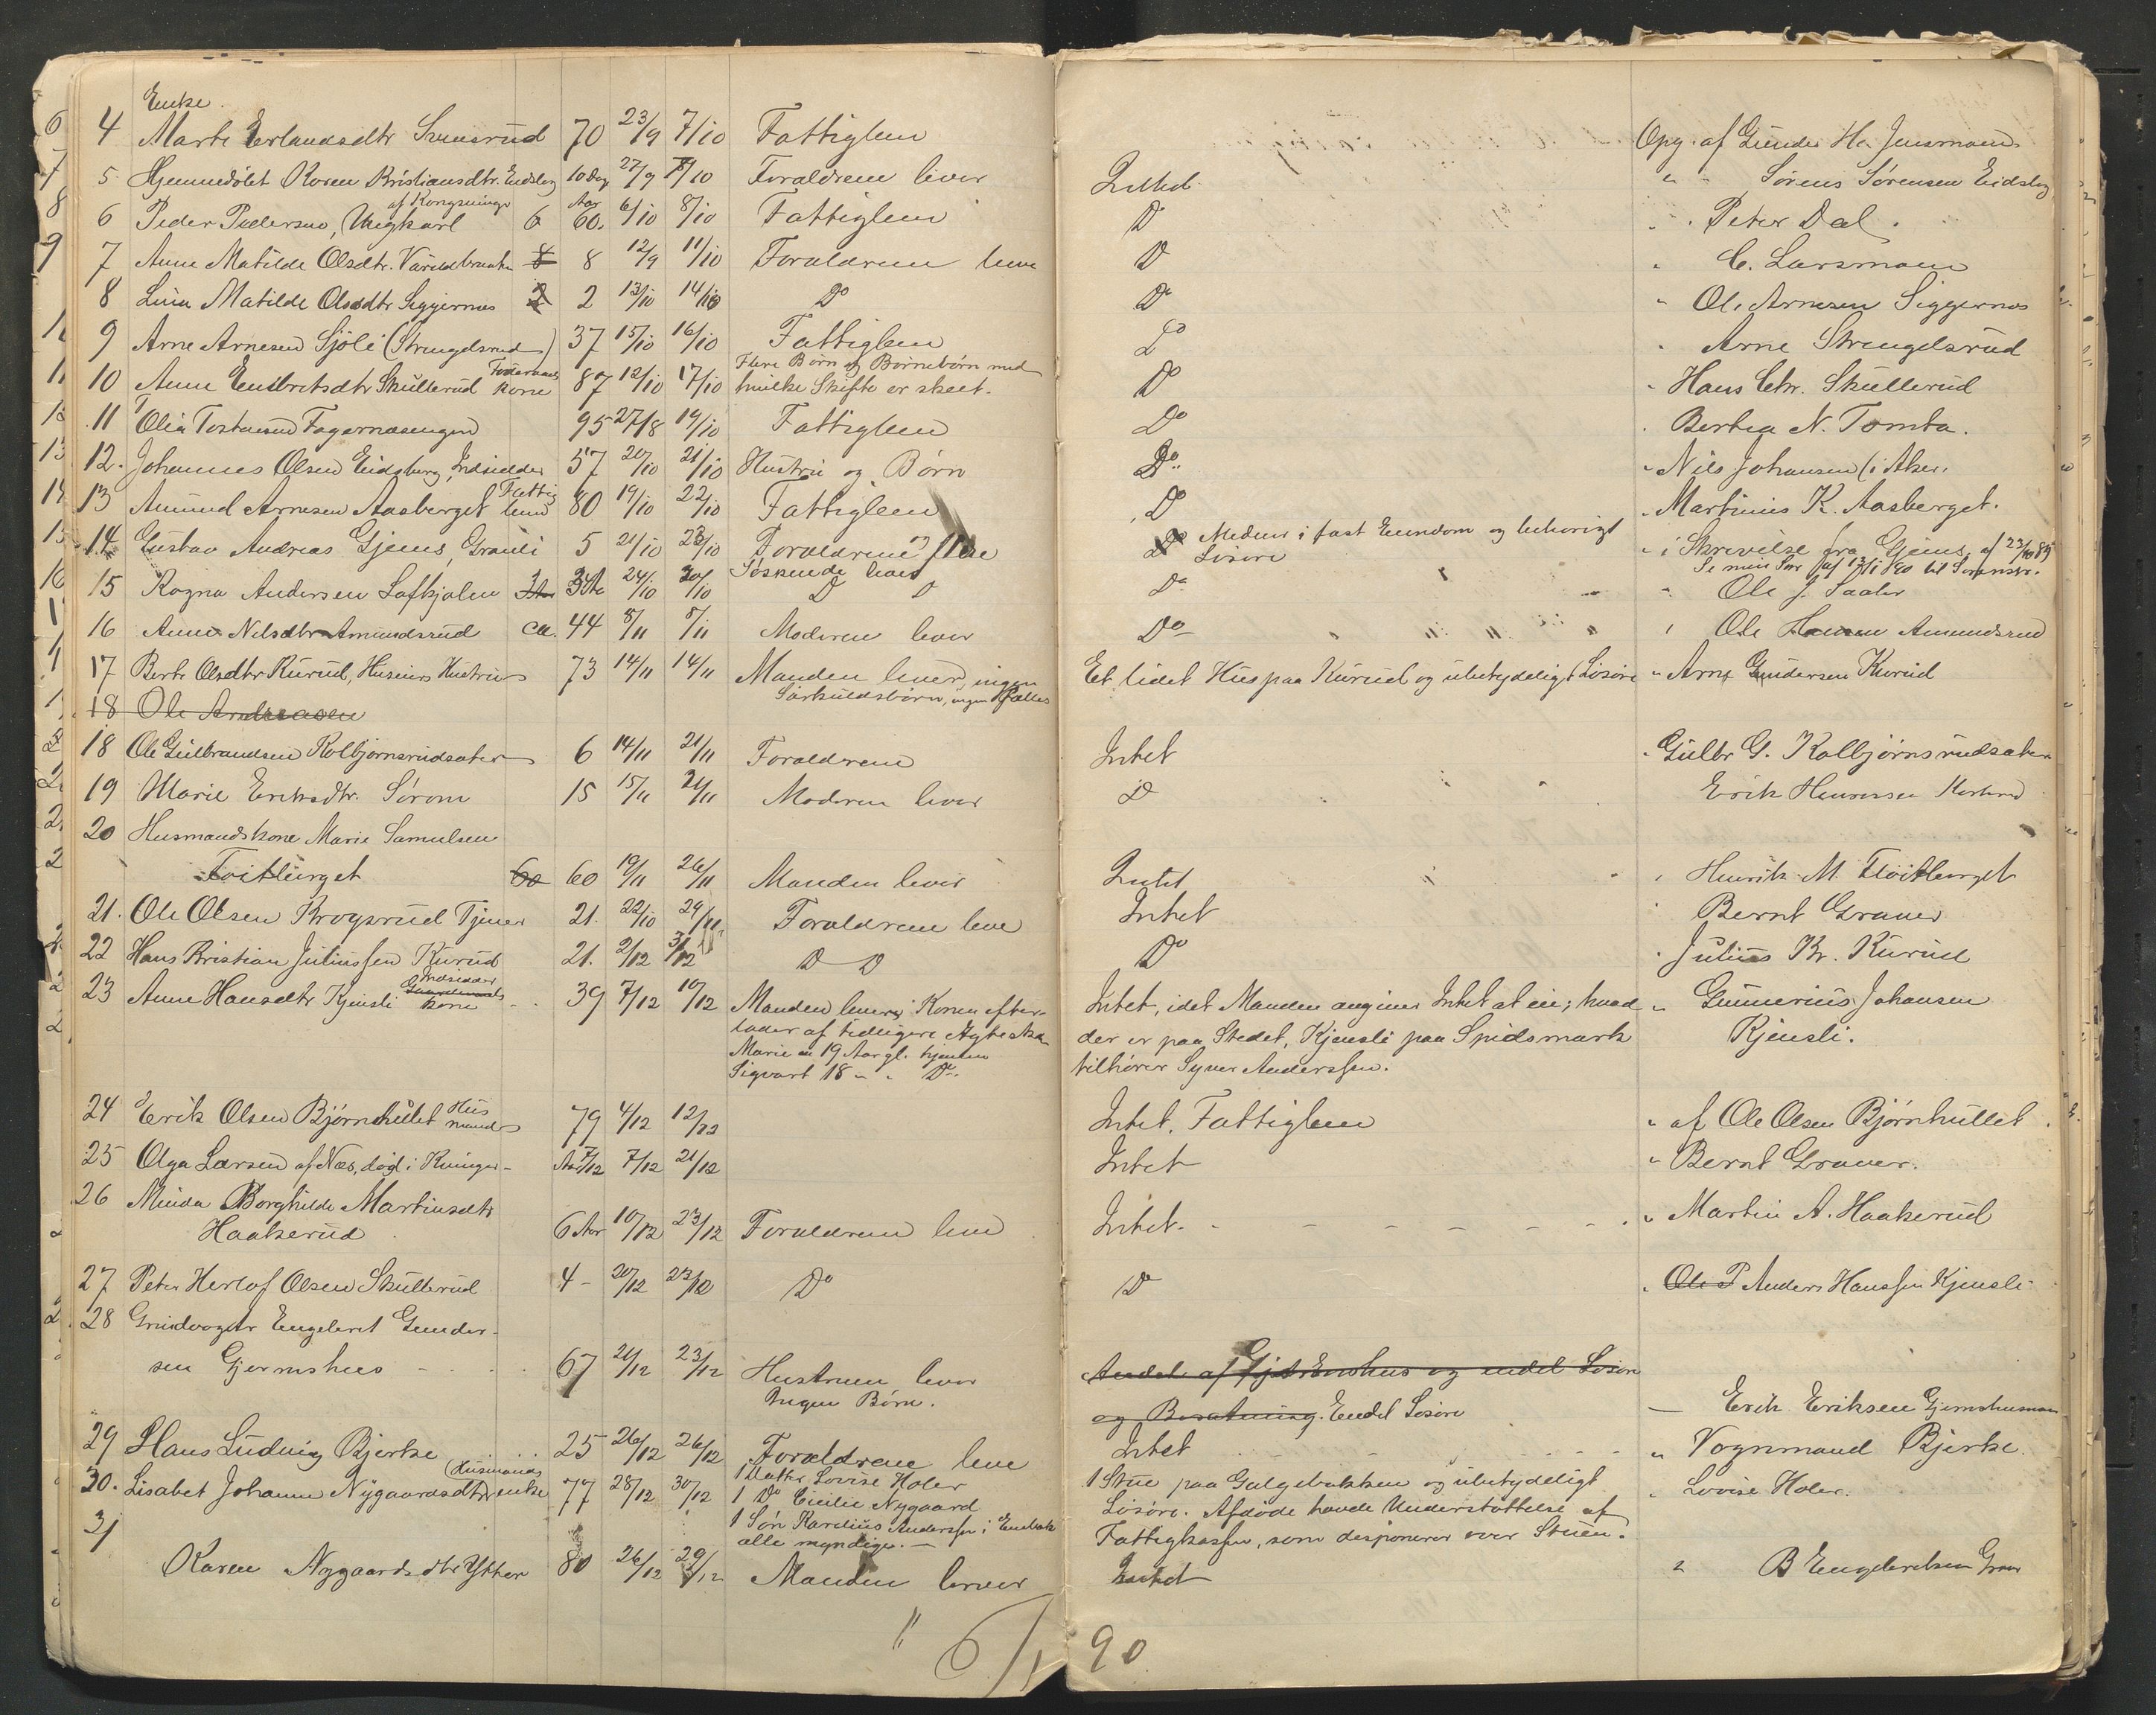 Enke.
4 Marte Erlandsdtr Svensrud 70 23/9 7/10 Fattiglem Opg. af Gunder H. Jensmoen
5 Hjemmedöbt Karen Kristiansdtr. Eidsberg 10 Dag 27/9 7/10 Foraldrene lever Intet " " Sørens Sørensen Eidsberg
af Kongsvinger Aar
6 Peder Pedersen, Ungkarl 6 60. 6/10 8/10 Fattiglem Do " Peter Dal.
7 Anne Matilde Olsdtr. 8 8 12/9 11/10 Foraldrene leve Do " C. Larsmoen
8 Lina Matilde Olsdtr Siggernæs 2 2 13/10 14/10 Do Do " Ole Arnesen Siggernæs
9 Arne Arnesen Sjöli (Strengelsrud) 37 15/10 16/10 Fattiglem Do " Arne Strengelsrud
10 Anne Embretsdtr Skullerud Føderaads kone 87 12/10 17/10 Flere Børn og Børnebørn med Do " Hans Chr. Skullerud
hvilke Skifte er skeet.
11 Olia Tostensen Fagernæsengen 95 27/8 19/10 Fattiglem Do " Berthe N. Tomta.
12. Johannes Olsen Eidsberg, Indsidder 57 20/10 21/10 Hustru og Børn Do " Nils Johansen (i Aker.
13 Amund Arnesen Aasberget Fattiglem 80 19/10 22/10 Fattiglem Do " Martinius K. Aasberget.
14 Gustav Andreas Gjems, Granli 5 21/10 23/10 Foraldrene, flere Medeier i fast Eiendom og behørigt " i Skrivelse fra Gjems af 23/10 89
Søskende lever Løsøre
15 Ragna Andersen Lofkjølen 24/10 30/10 D D Do " Ole J. Saater
16 Anne Nilsdtr Amundsrud ca. 44 8/11 8/11 Moderen lever Do " " " " Ole Hansen Amundsrud
17 Berte Olsdtr Kurud, Huseiers Hustru 73 14/11 14/11 Manden lever, ingen Et lidet Hus paa Kurud og ubetydeligt Løsøre " Arne Gundersen Kurud
Særkuldsbørn, ingen Fælles
18 Ole Andreasen
18 Ole Gulbrandsen Kolbjørnsrudsæter 6 14/11 21/11 Foraldrene Intet " Gulbr G. Kolbjørnsrudsæter
19 Marie Eriksdtr. Sörom 15 15/11 21/11 Moderen lever D Erik Hansesen
20 Husmandskone Marie Samulsen
Fløitberget 60 60 19/11 26/11 Manden lever Intet " Henrik M. Fløitberget
21. Ole Olsen Krogsrud Tjener 21. 22/10 29/11 Foraldrene leve Intet " Bernt Graver
22 Hans Kristian Juliussen Kurud 21. 2/12 3/12 D D Do " Julius Kr. Kurud
23 Anne Hansdtr Kjensli Indsidder Gaardmands kone 39 7/12 10/12 Manden lever; Konen efter- Intet, idet Manden angiver Intet at eie; hvad " Gunnerius Johansen
lader af tidligere Ægteskab der er paa Stedet, Kjensli paa Spidsmark Kjensli.
Marie en 19 Aar gl. tjenten tilhører Syver Anderssen.
Sigvart 18 " " Do.
24 Erik Olsen Bjørnhullet Husmand 79 4/12 12/12 Intet. Fattiglem " af Ole Olsen Bjørnhullet.
25 Olga Larsen af Næs, død i Kvinger- 7/12 7/12 21/12 Intet " Bernt Graver.
26 Minda Borghilde Martinsdtr
Haakerud 6 Aar 10/12 23/12 Foraldrene leve Intet. - - - - - - " Martin A. Haakerud
27 Peter Herlof Olsen Skullerud 4 - 20/12 23/12 Do Do " Ole P Anders Hanssen Kjensli
28 Grindvogter Engebret Gunder-
sen Gjermshus - - - 67 21/12 23/12 Hustruen lever Andel af Gjermshus og endel Løsøre
Ingen Børn. og Besætning. Endel Løsøre — Erik Eriksen Gjermshusmoen
29 Hans Ludvig Bjerke 25 26/12 26/12 Foraldrene leve Intet - - - " Vognmand Bjerke.
30. Lisabet Johanne Nygaardsdtr (Husmands enke 77 28/12 30/12 1 Datter Lovise Holer 1 Stue paa Galgebakken og ubetydeligt " Lovise Holer.
1 Do Cicilie Nygaard Løsøre. Afdøde havde Understøttelse af
1 Søn Karelius Anderssen i Enebak Fattigkassen, som desponerer over Stuen.
alle myndige. —
31
Karen Nygaardsdtr Ytter 80 26/12 29/12 Manden lever Intet " B Engebretsen Graver
6/1 90